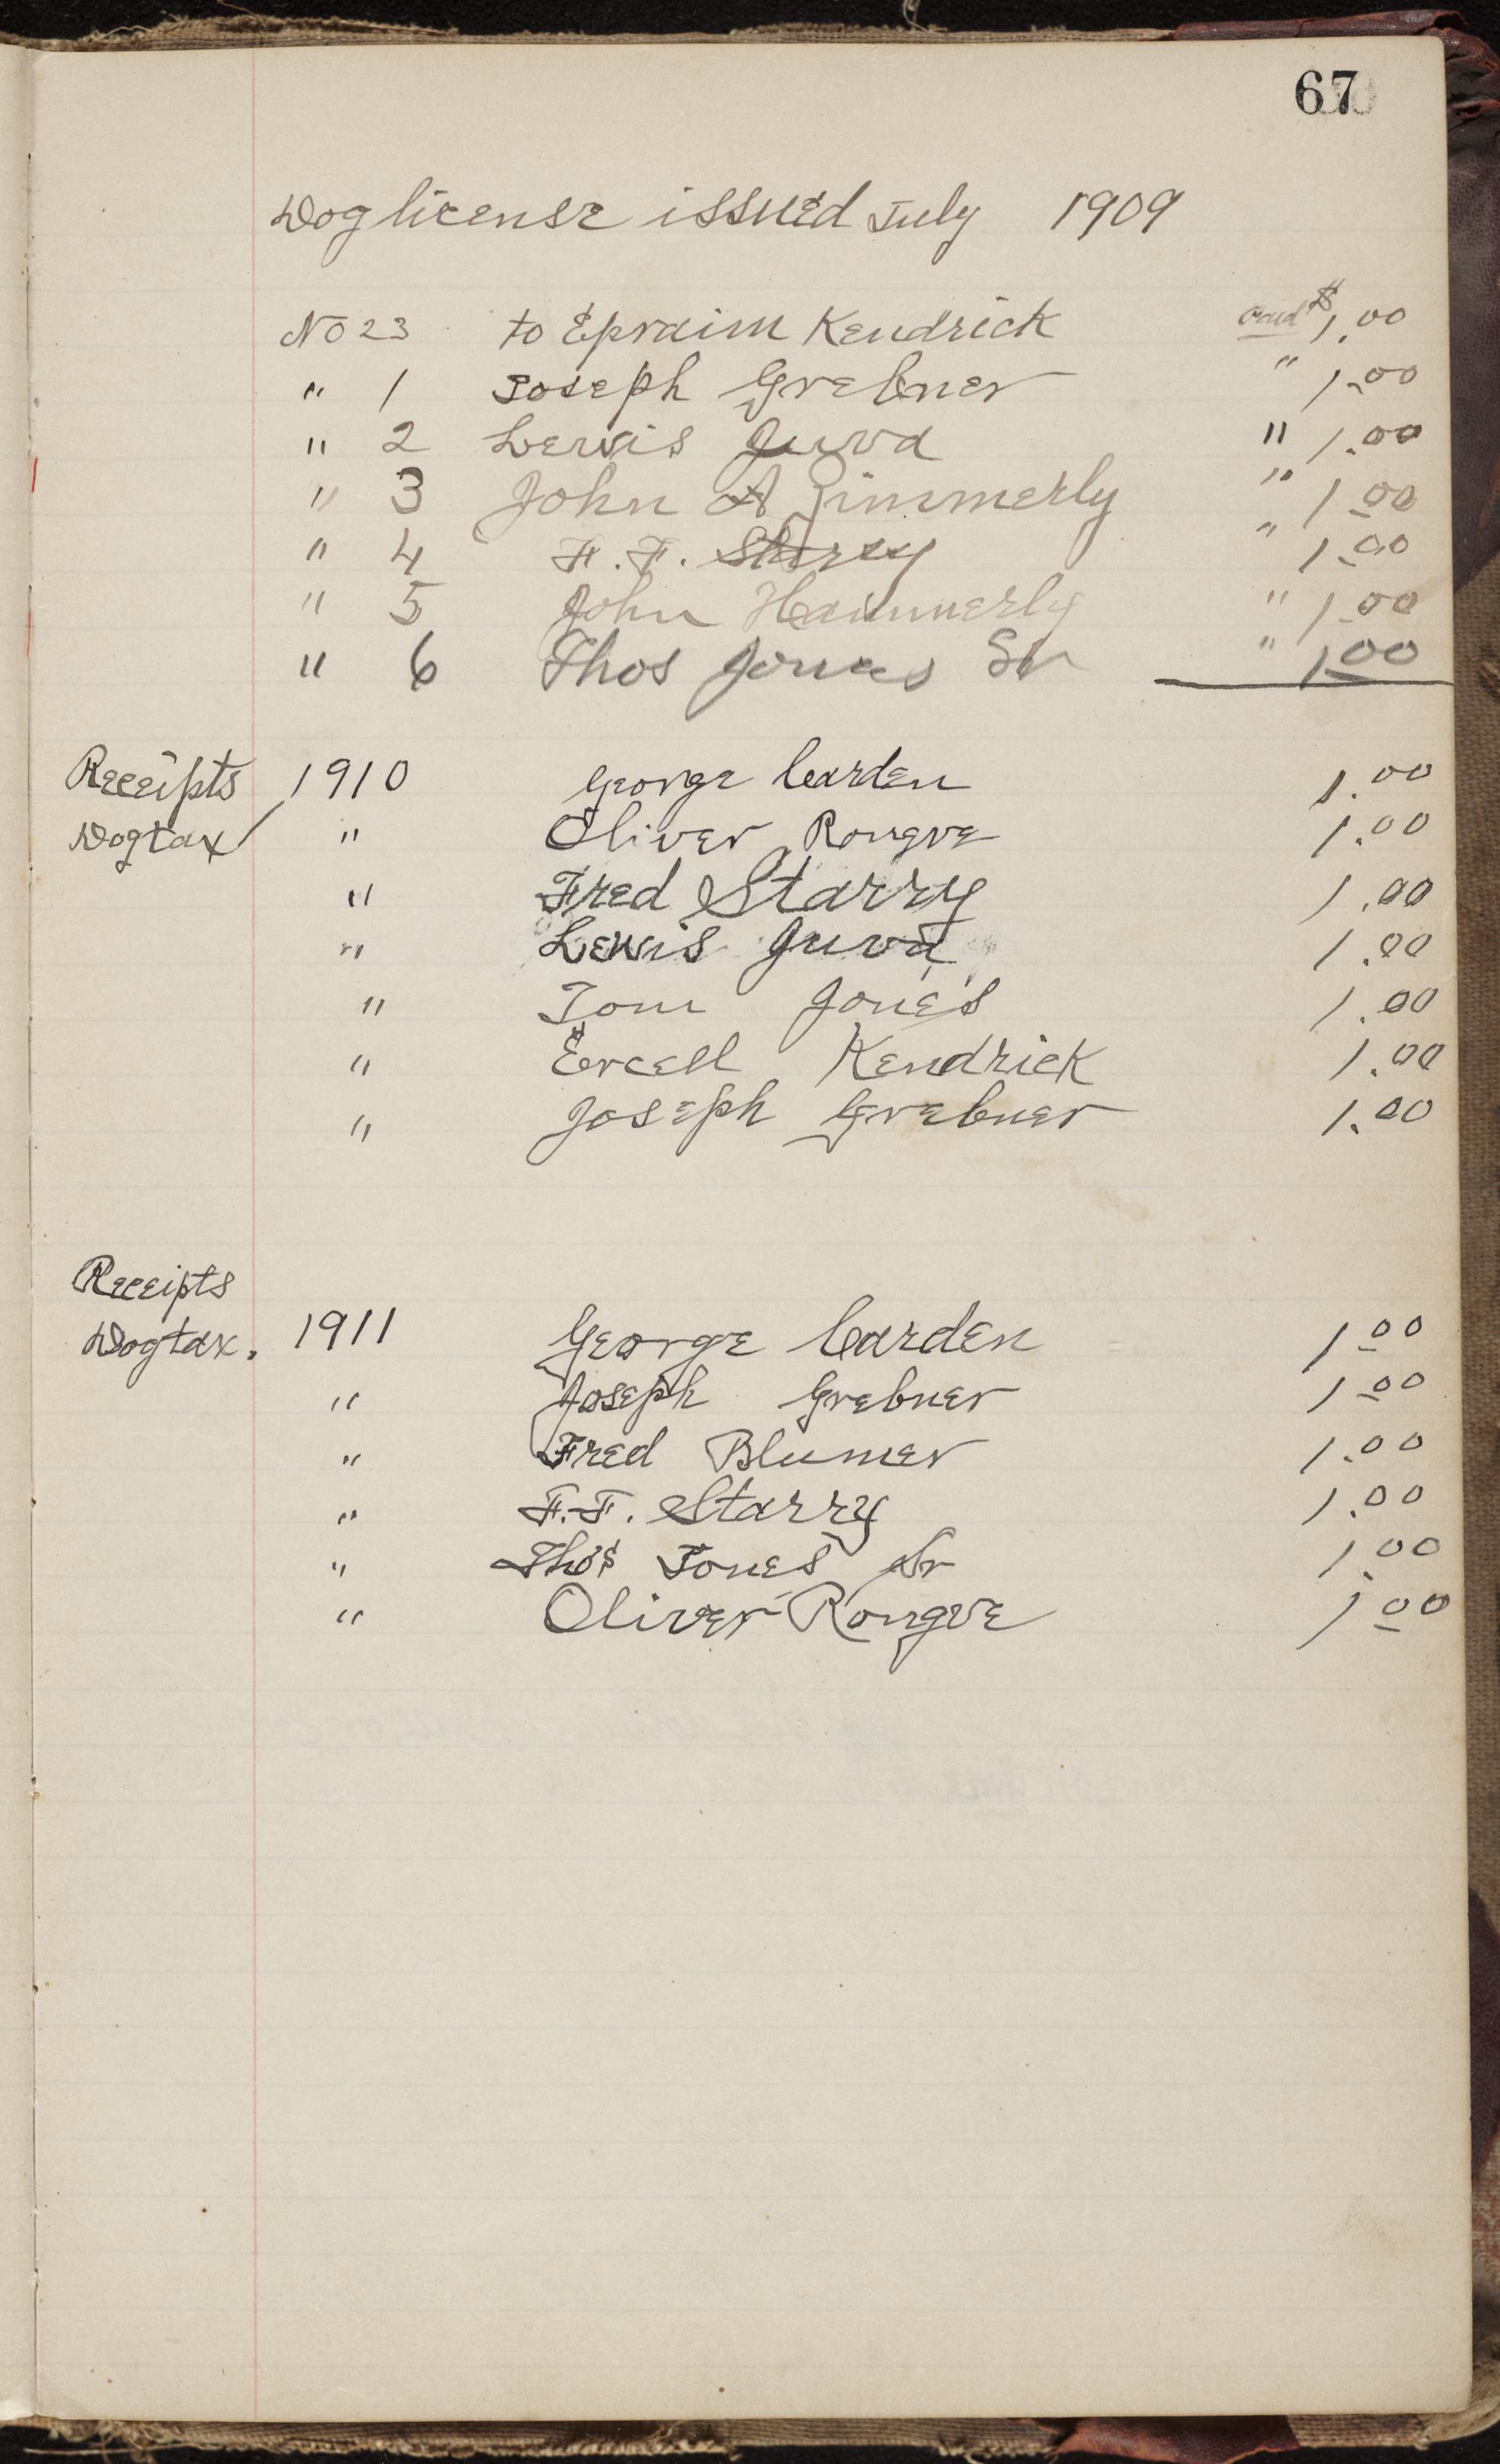 67
Dog license issued July 1909
No 23 to Epraim Kendrick paid $1.00
" 1 Joseph Grebner " 1.00
" 2 Lewis Juvd " 1.00
" 3 John A Zimmerly " 1.00
" 4 F. F. Starry " 1.00
" 5 John Hammerly " 1.00
" 6 Thos Jones Sr " 1.00
Receipts 1910 George Carden 1.00
Dogtax " Oliver Rongve 1.00
" Fred Starry 1.00
" Lewis Juvd 1.00
" Tom Jones 1.00
" Ercell Kendrick 1.00
" Joseph Grebner 1.00
Receipts
Dogtax. 1911 George Carden 1.00
" Joseph Grebner 1.00
" Fred Blumer 1.00
" F. F. Starry 1.00
" Thos Jones Sr 1.00
" Oliver Rongve 1.00